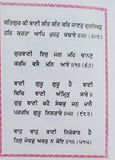 ਸਤਿਗੁਰ ਕੀ ਬਾਣੀ ਸਤਿ ਸਤਿ ਕਰਿ ਜਾਣਹੁ ਗੁਰਸਿਖਹੁ
ਹਰਿ ਕਰਤਾ ਆਪਿ ਮੁਹਹੁ ਕਢਾਏ ॥
ਗੁਰਬਾਣੀ ਇਸੁ ਜਗ ਮਹਿ ਚਾਨਣੁ
ਕਰਮਿ ਵਸੈ ਮਨਿ ਆਏ ॥
ਬਾਣੀ ਗੁਰੂ ਗੁਰੂ ਹੈ ਬਾਣੀ
ਵਿਚਿ ਬਾਣੀ ਅੰਮ੍ਰਿਤੁ ਸਾਰੇ ॥
ਗੁਰੁ ਬਾਣੀ ਕਹੈ ਸੇਵਕੁ ਜਨੁ ਮਾਨੈ
ਪਰਤਖਿ ਗੁਰੂ ਨਿਸਤਾਰੇ ॥
ਵਾਹੁ ਵਾਹੁ ਬਾਣੀ ਨਿਰੰਕਾਰ ਹੈ
ਤਿਸੁ ਜੇਵਡੁ ਅਵਰੁ ਨ ਕੋਇ ॥